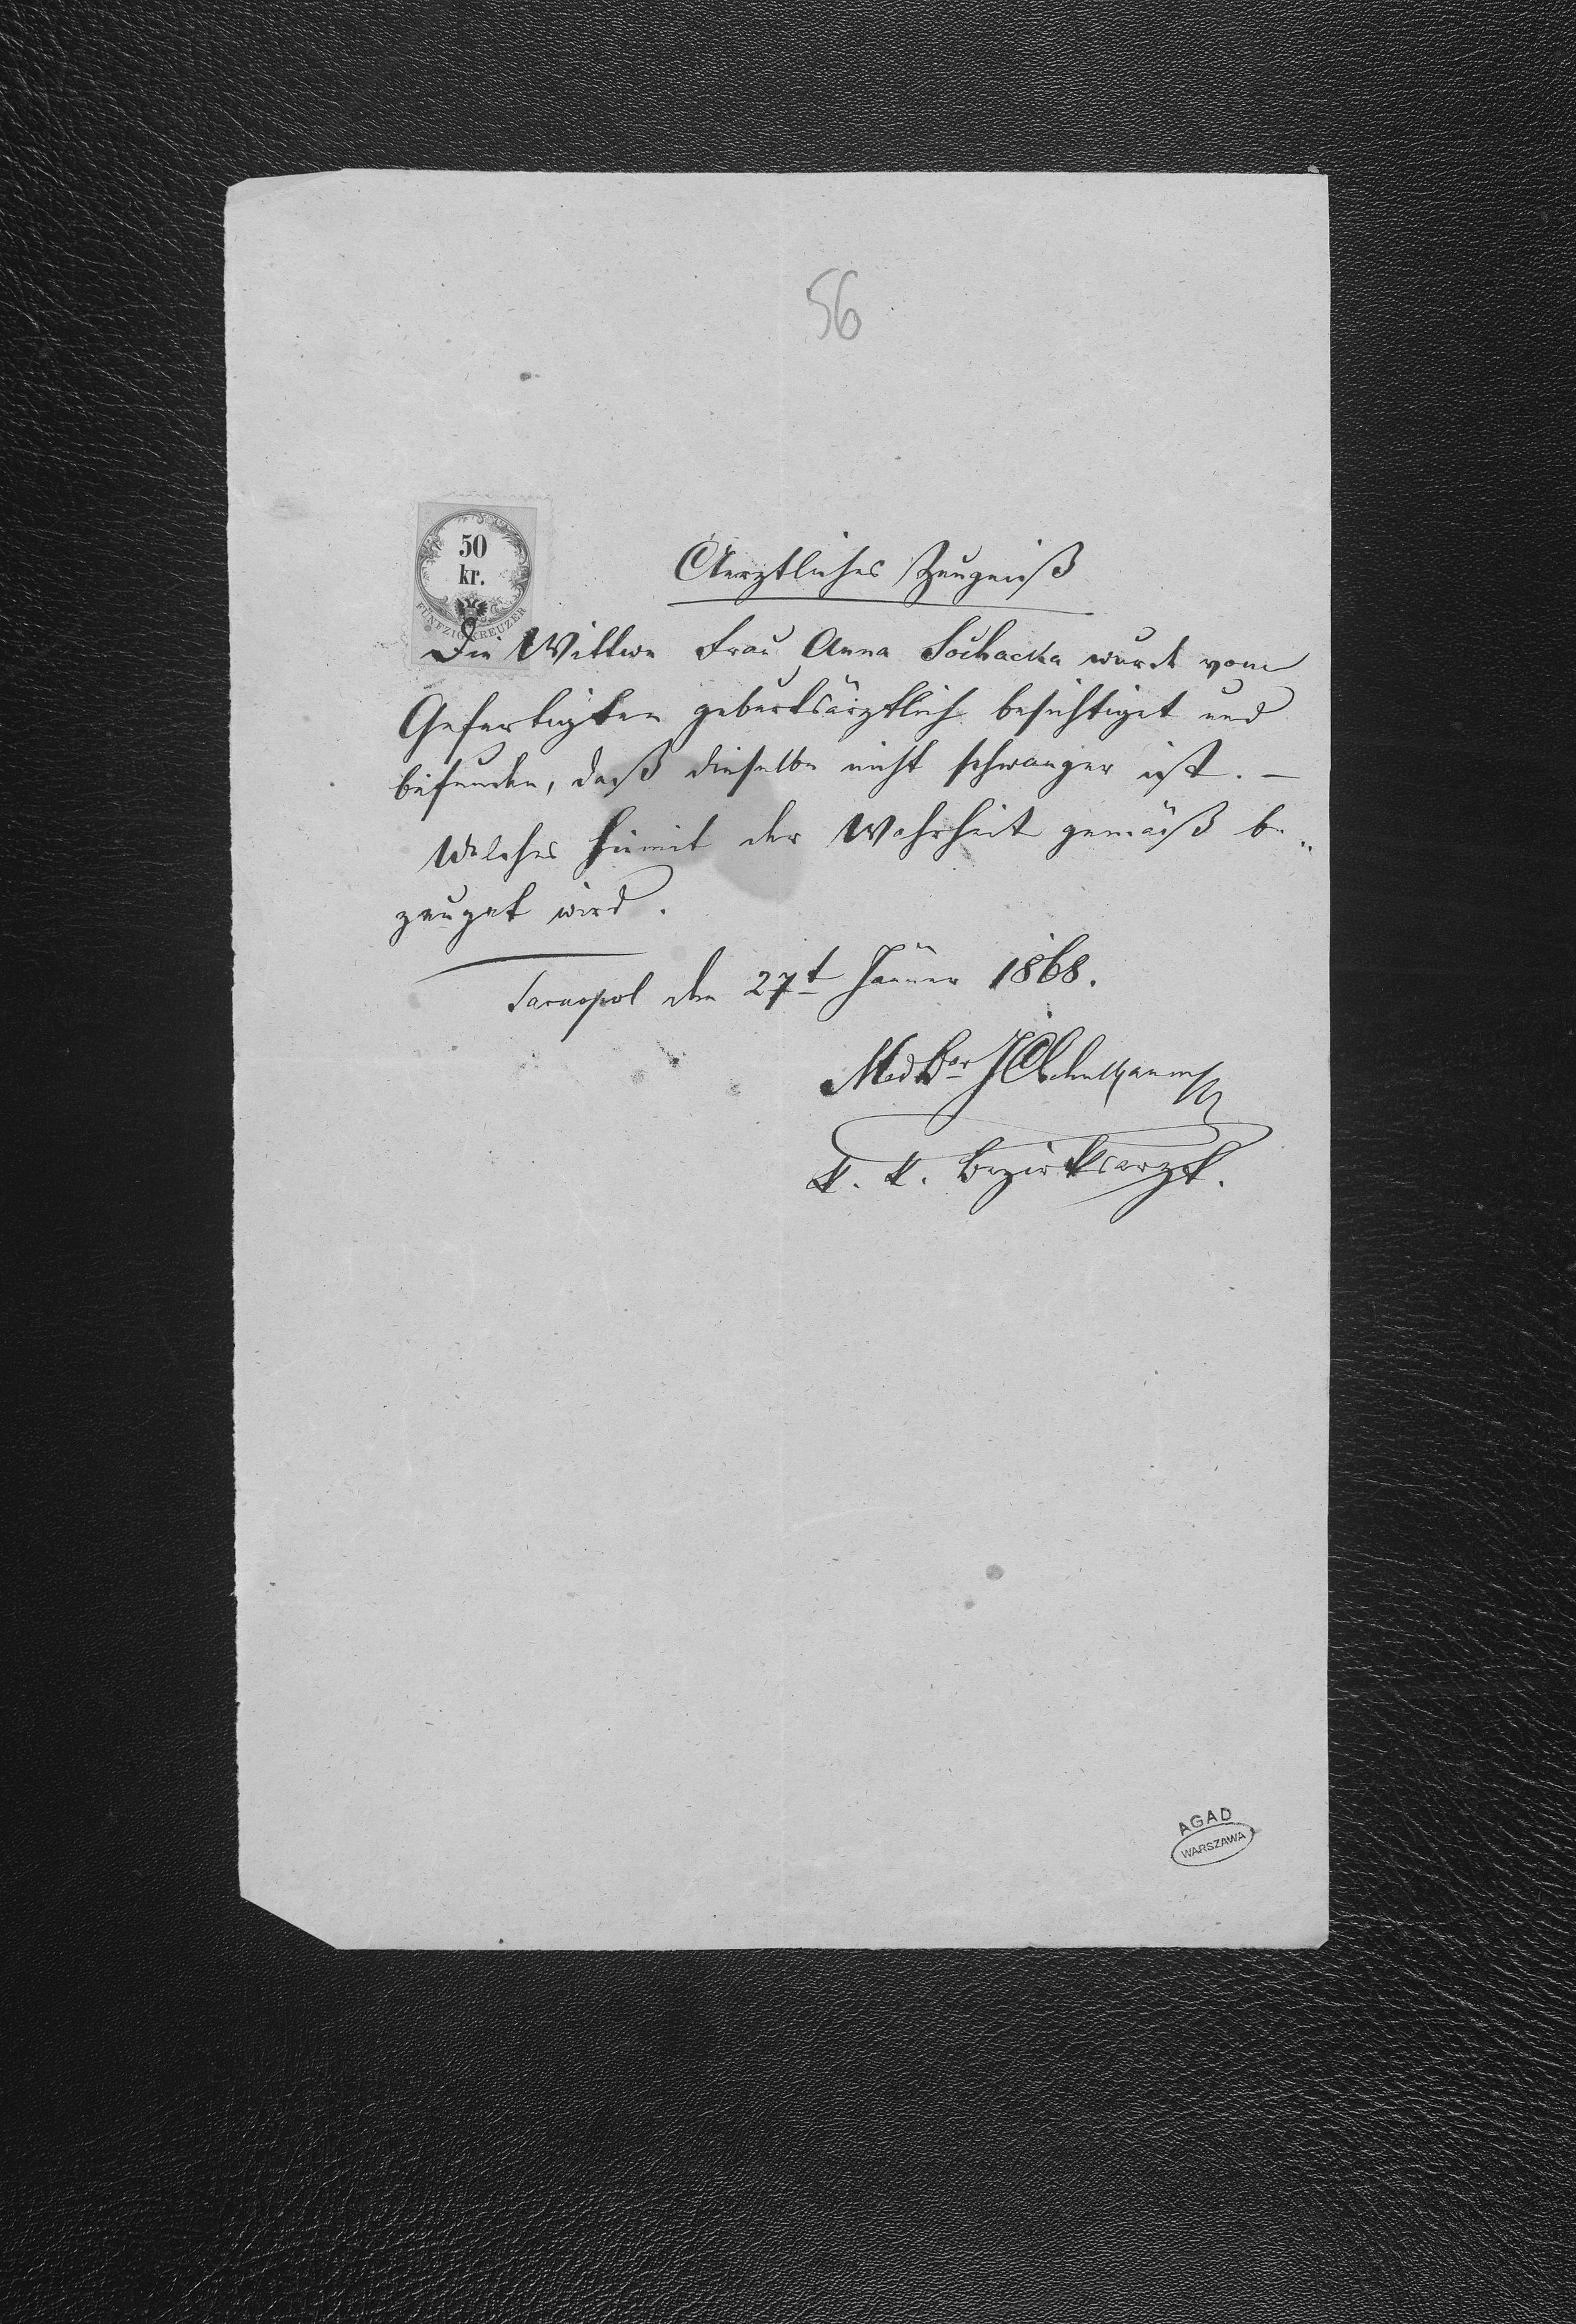 56
50
kr.
FÜNFZIG KREUZER
Aerztliches Zeugniß
Die Wittwe Frau Anna Sochacka wurde vom
Gefertigten geburtsärztlich besichtiget und
befunden, daß dieselbe nicht schwanger ist. —
Welches hiemit der Wahrheit gemäß be„
zeuget wird.
Tarnopol den 27t Jänner 1868.
Med Dor
k. k. Bezirksarzt.
AGAD
WARSZAWA